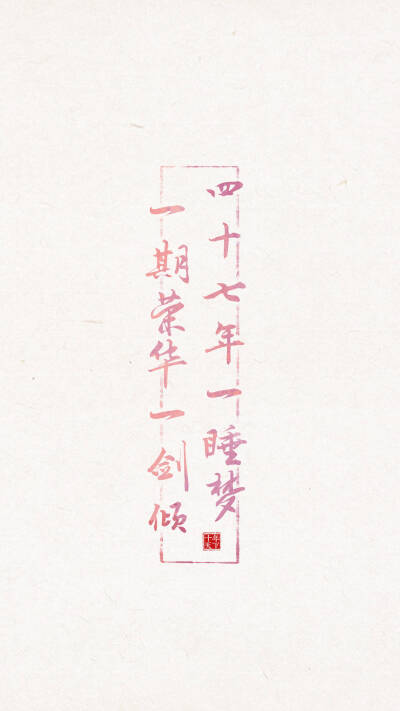 四十七年一睡梦
一期荣华一剑倾